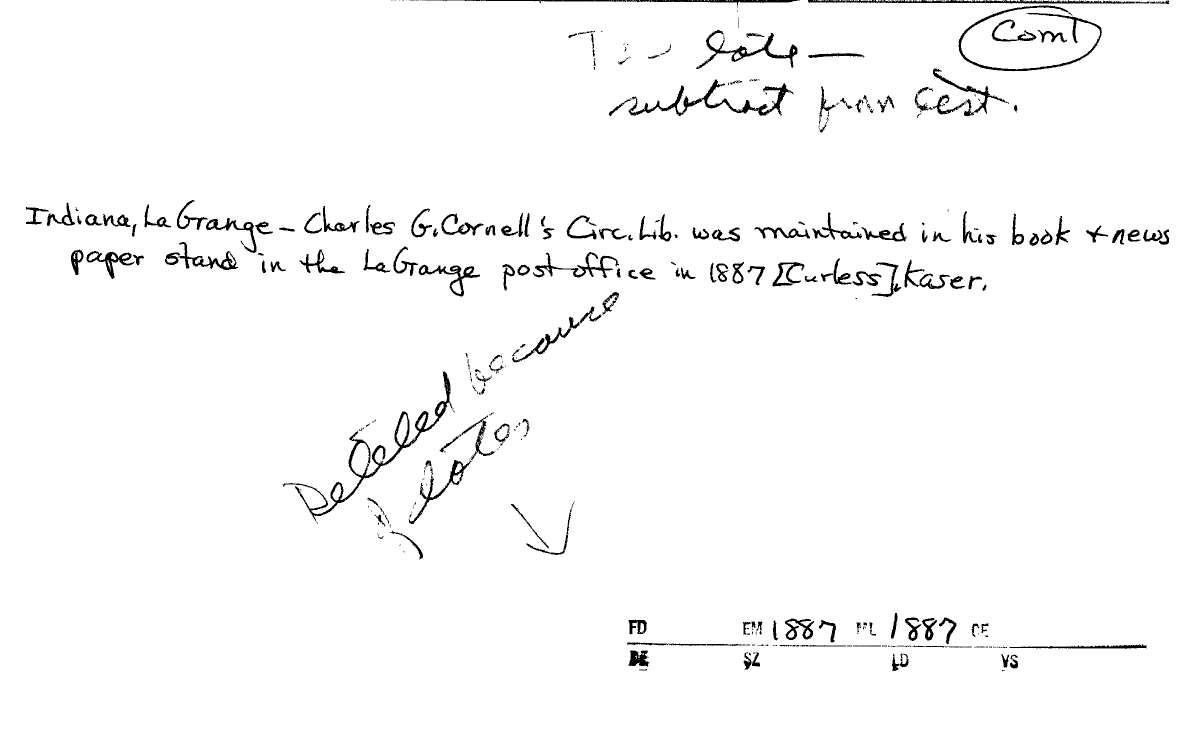 Coml
Too late —
subtract from Cest.
Indiana, LaGrange – Charles G. Cornell's Circ. Lib. was maintained in his book + news
paper stand in the LaGrange post office in 1887 [Curless], Kaser.
Deleted because
of
FD EM 1887 ML 1887 CE
DE SZ LD VS